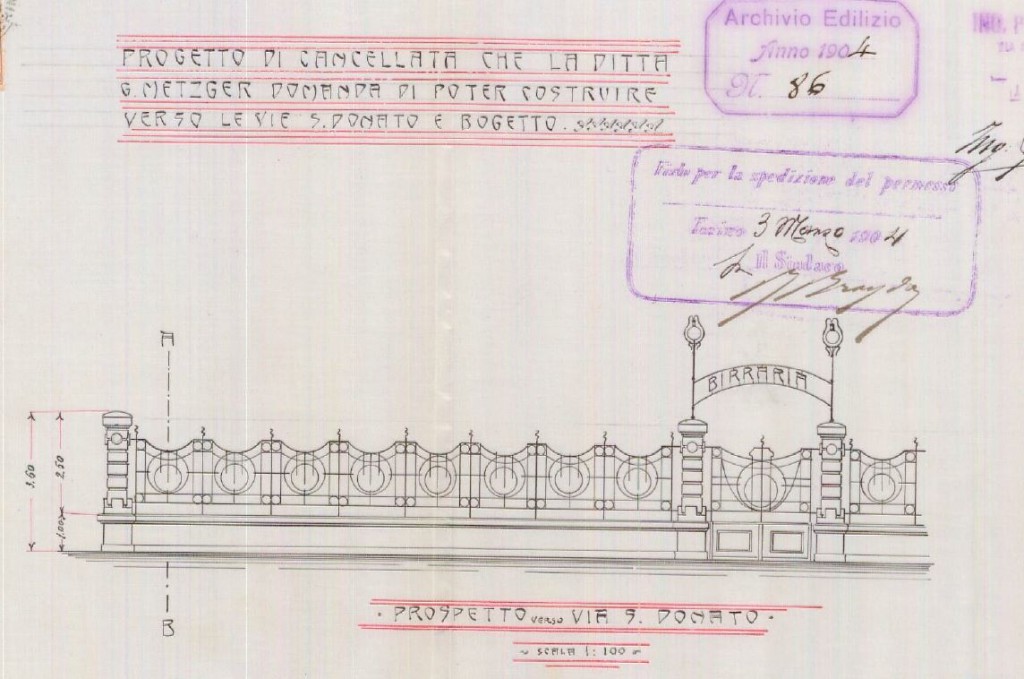 PROGETTO DI CANCELLATA CHE LA DITTA
G. METZGER DOMANDA DI POTER COSTRUIRE
VERSO LE VIE S. DONATO E BOGETTO.
Archivio Edilizio
Anno 1904
N. 86
ING. P
Ing.
Visto per la spedizione del permesso
Torino 3 Marzo 1904
Il Sindaco
A
BIRRARIA
3.60
2.50
1.00
B
PROSPETTO VERSO VIA S. DONATO.
SCALA 1:100